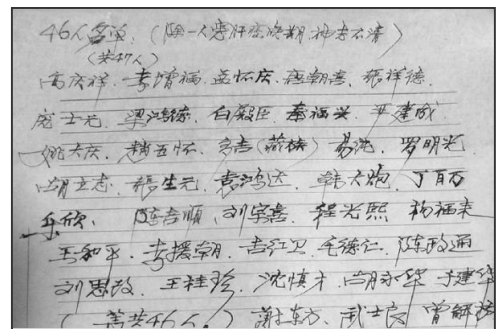 46人名单:(除一人患肝癌晚期神志不清)
(共47人)
高庆祥、李增福、孟怀庆、唐朝喜、张祥德、
庞士元、梁鸿德、白殿臣、秦福兴、尹建成
姚大庆、赵五怀、易浩、罗明光
胡立志、张生元、袁鸿达、韩大炮、丁百万
乐欣、陈吉顺、刘宝喜、程光熙、杨福来
王和平、李援朝、吉红卫、毛德仁、陈政通
刘思改、王桂珍、沈慎才、胡永华、于建华
(共46人。) 谢东方、武士良、曾解放